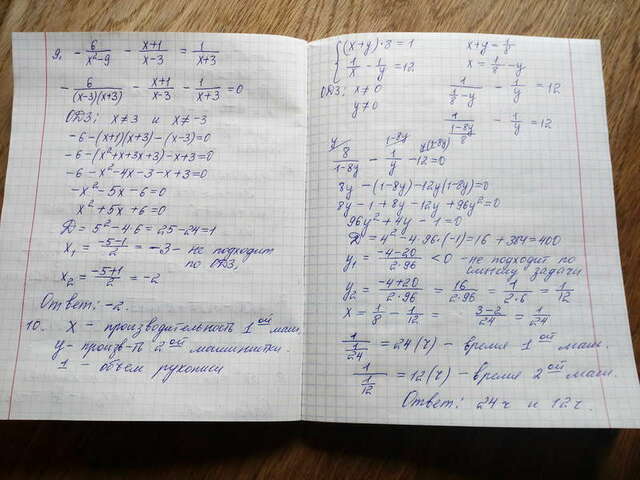 9. - 6/(x²-9) - (x+1)/(x-3) = 1/(x+3)
- 6/((x-3)(x+3)) - (x+1)/(x-3) - 1/(x+3) = 0
ОДЗ: x ≠ 3 и x ≠ -3
-6-(x+1)(x+3)-(x-3)=0
-6-(x²+x+3x+3)-x+3=0
-6-x²-4x-3-x+3=0
-x²-5x-6=0
x²+5x+6=0
D = 5²-4·6=25-24=1
x₁ = (-5-1)/2 = -3 - не подходит
по ОДЗ,
x₂ = (-5+1)/2 = -2
Ответ: -2.
10. x - производительность 1ой маш.
y - произв-ть 2ой машинистки.
1 - объем рукописи
{ (x+y)·8=1
1/x - 1/y = 12
ОДЗ: x ≠ 0
y ≠ 0
x+y = 1/8
x = 1/8 - y
1/(1/8 - y) - 1/y = 12
1/((1-8y)/8) - 1/y = 12
y/ 1-8y/ y(1-8y)/
8/(1-8y) - 1/y - 12=0
8y-(1-8y)-12y(1-8y)=0
8y-1+8y-12y+96y²=0
96y²+4y-1=0
D = 4²-4·96·(-1)=16+384=400
y₁ = (-4-20)/(2·96) < 0 - не подходит по
смыслу задачи
y₂ = (-4+20)/(2·96) = 16/(2·96) = 1/(2·6) = 1/12
x = 1/8 - 1/12 = (3-2)/24 = 1/24
1/(1/24) = 24 (ч) - время 1ой маш.
1/(1/12) = 12 (ч) - время 2ой маш.
Ответ: 24ч и 12ч.